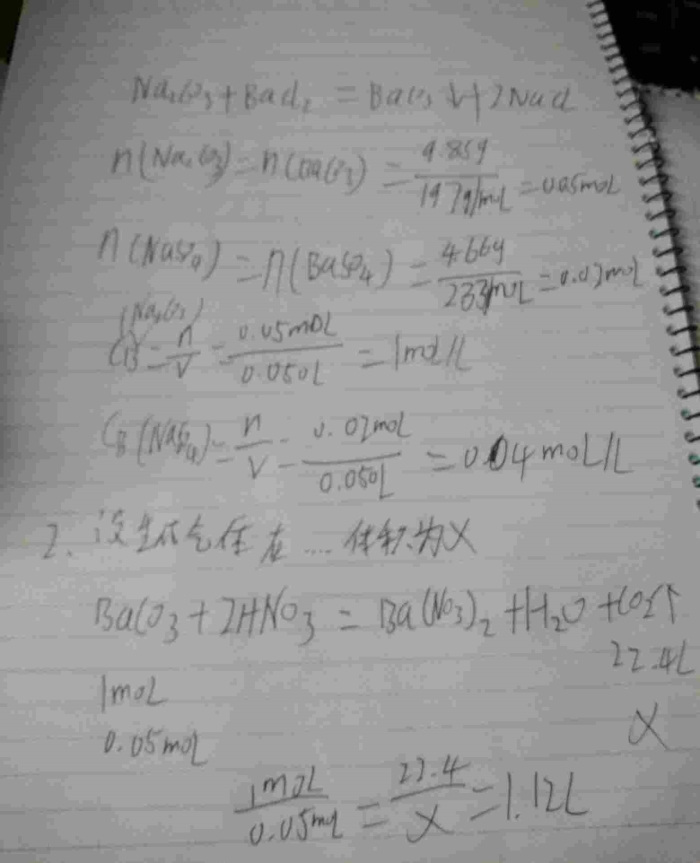 Na₂CO₃+BaCl₂=BaCO₃↓+2NaCl
n(Na₂CO₃)=n(BaCO₃)=9.85g/197g/mol=0.05mol
n(NaSO₄)=n(BaSO₄)=4.66g/233g/mol=0.02mol
(Na₂CO₃)
CB=n/V=0.05mol/0.050L=1mol/L
CB(NaSO₄)=n/V=0.02mol/0.050L=0.04moL/L
2. 设生成气体在....体积为X
BaCO₃+2HNO₃=Ba(NO₃)₂+H₂O+CO₂↑
22.4L
1moL
X
0.05moL
1moL/0.05moL=22.4/X=1.12L